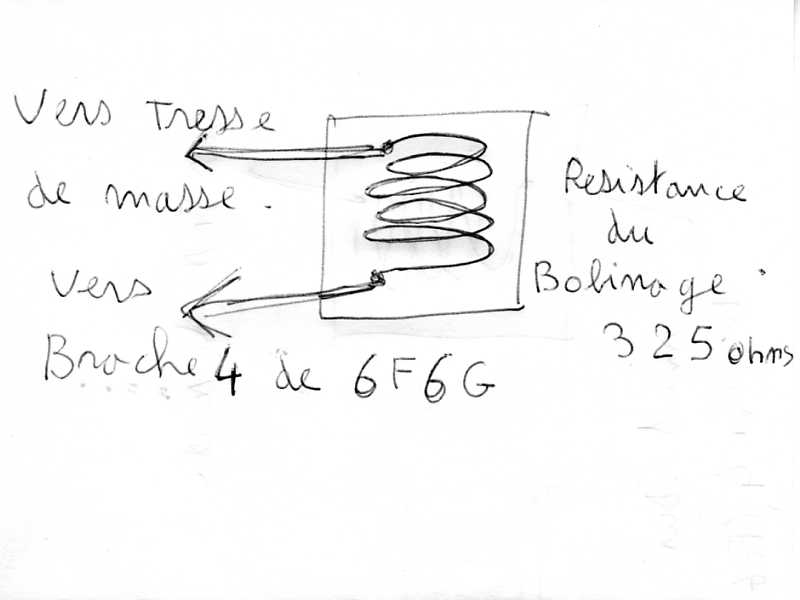 Vers Tresse
de masse.
Vers
Broche 4 de 6F6G
Resistance
du
Bobinage.
325 ohms